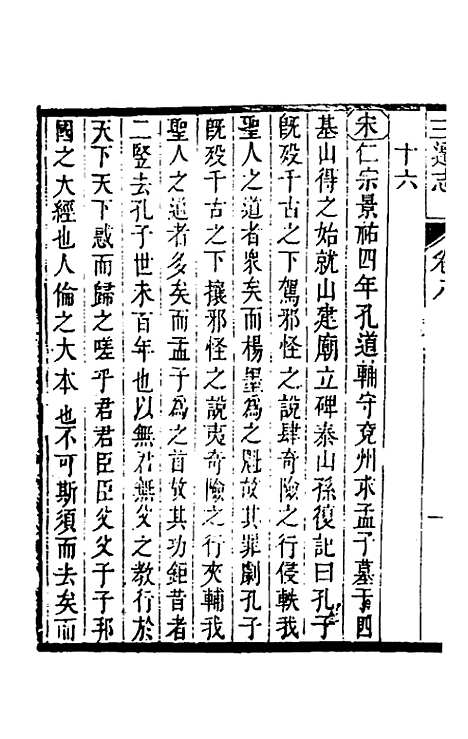 三遷志
卷八
一
十六
宋仁宗景祐四年孔道輔守兗州求孟子墓于四
基山得之始就山建廟立碑泰山孫復記曰孔子
旣歿千古之下駕邪怪之說肆奇險之行侵軼我
聖人之道者衆矣而楊墨爲之魁故其罪劇孔子
旣歿千古之下攘邪怪之說夷奇險之行夾輔我
聖人之道者多矣而孟子爲之首故其功鉅昔者
二竪去孔子世未百年也以無君無父之教行於
天下天下惑而歸之嗟乎君君臣臣父父子子邦
國之大經也人倫之大本也不可斯須而去矣而